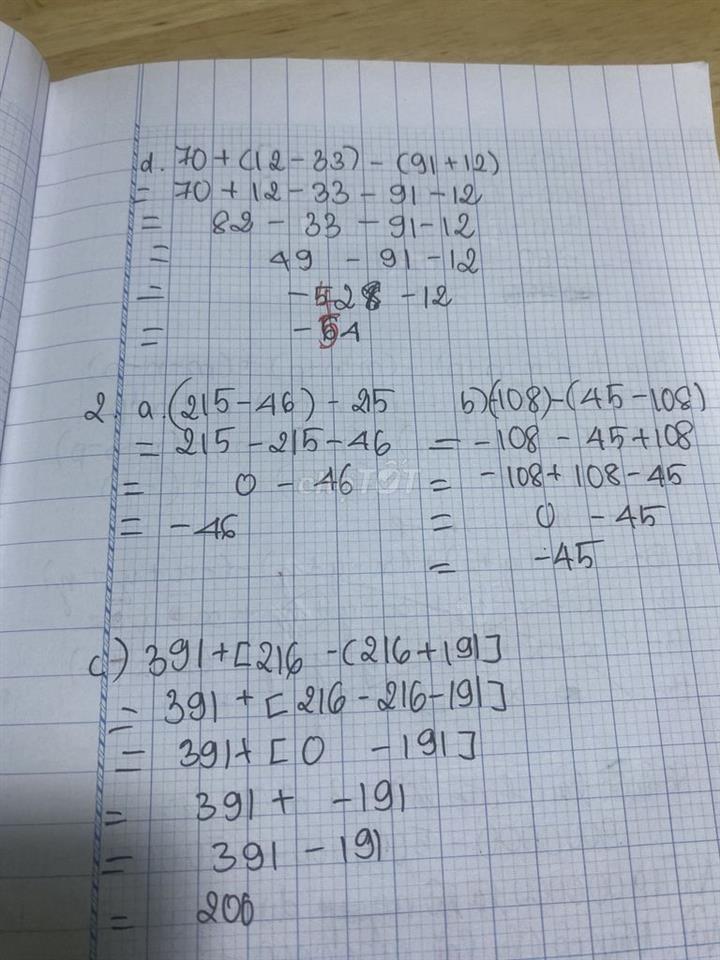 d. 70 + (12 - 33) - (91 + 12)
= 70 + 12 - 33 - 91 - 12
= 82 - 33 - 91 - 12
= 49 - 91 - 12
= - 42 - 12
= - 54
2. a. (215 - 46) - 215
= 215 - 215 - 46
= 0 - 46
= - 46
b) (-108) - (45 - 108)
= -108 - 45 + 108
= -108 + 108 - 45
= 0 - 45
= -45
c) 391 + [216 - (216 + 191]
= 391 + [216 - 216 - 191]
= 391 + [0 - 191]
= 391 + - 191
= 391 - 191
= 200
chợTỐT